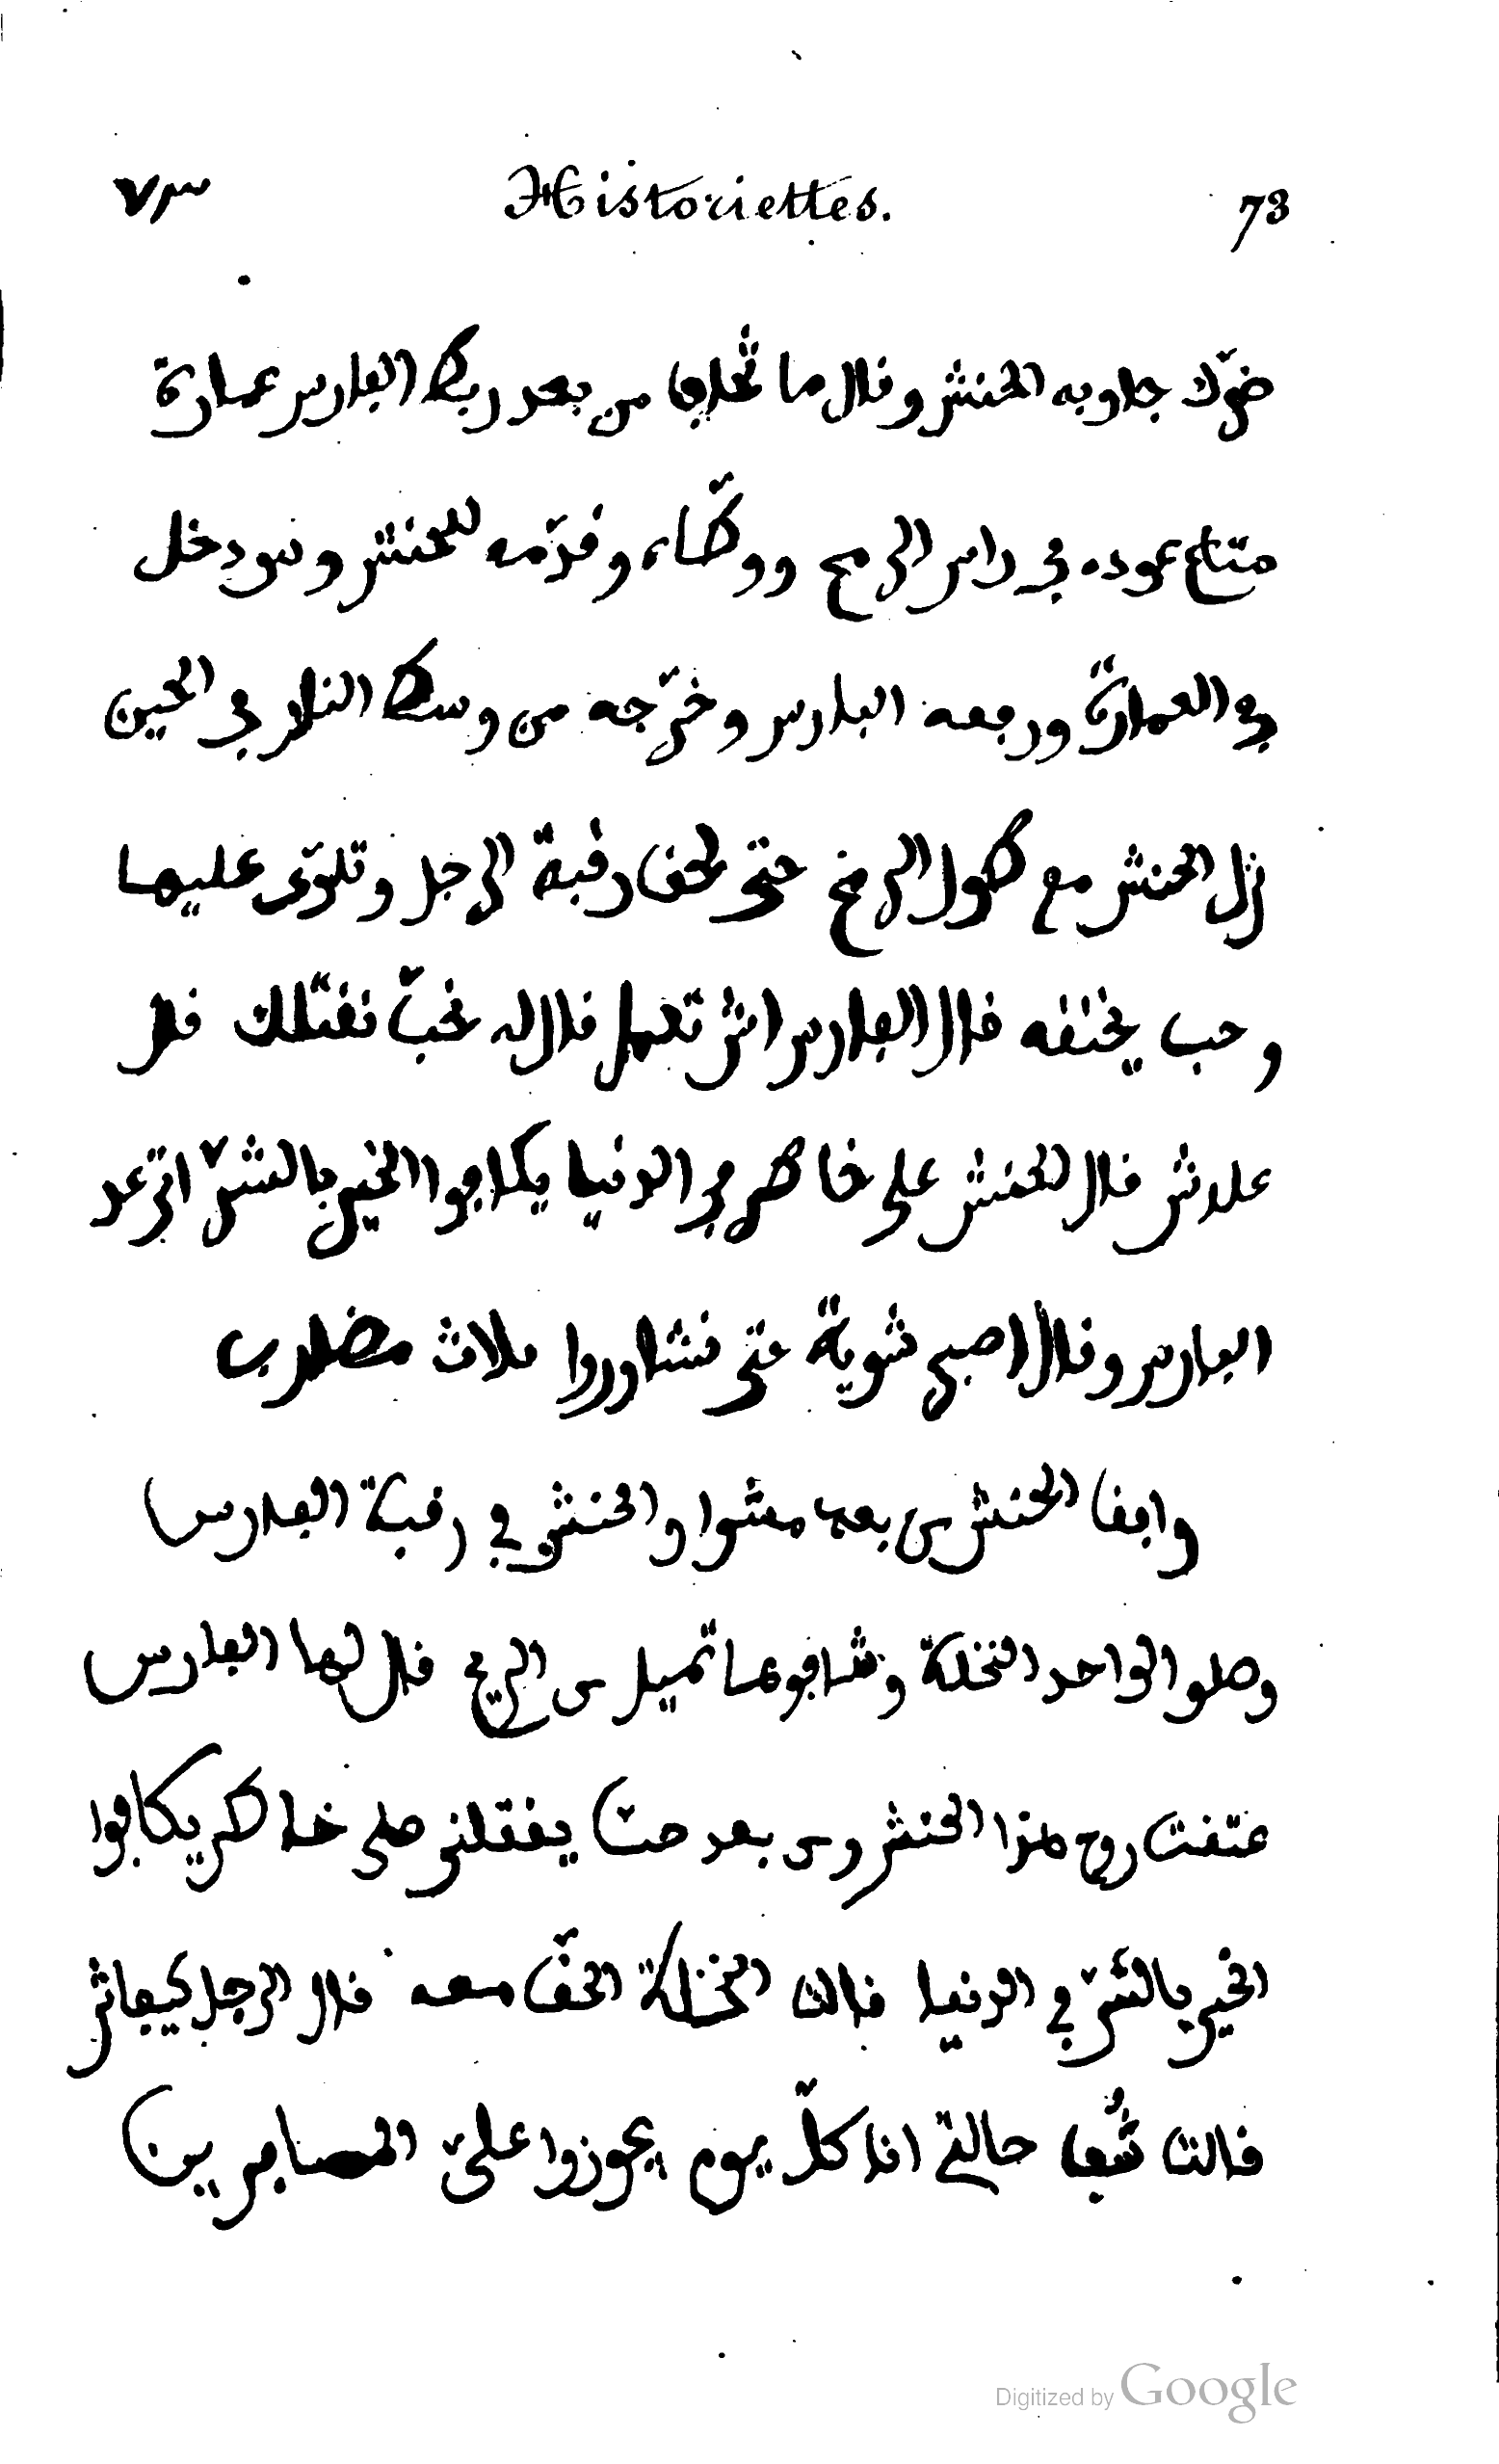 ٧٣ Historiettes. 73
ضرّك جاوبه الحنش وفال ما تخاف من بعد ربط الفارس عمارة
متاع عوده في راس الرمح ووطّاه وفدّمه للحنش ودخل
في العمارة ورفعه الفارس وخرّجه من وسط النار في الحين
نزل الحنش مع طول الرمح حتى لحف رفبة الرجل وتلوّى عليها
وحب يخنفه فال الفارس اش تعمل فال له نحبّ نفتلك فال
علاش فال الحنش على خاطر في الدنيا يكافوا الخير بالشرّ اترعد
الفارس وفال اصبر شوية حتى نشاوروا ثلاث مضارب
وافف الحنش من بعد مشوا والحنش في رفبة الفارس
وصلوا لواحد النخلة وشافوها تميل من الريح فال لها الفارس
عتفت روح هذا الحنش ومن بعد حب يفتلني على خاطر يكافوا
الخير بالشرّ في الدنيا فالت النخلة الحفّ معه فال الرجل كيفاش
فالت شُف حالتي انا كلّ يوم يجوزوا عليّ المسافرين
Digitized by Google